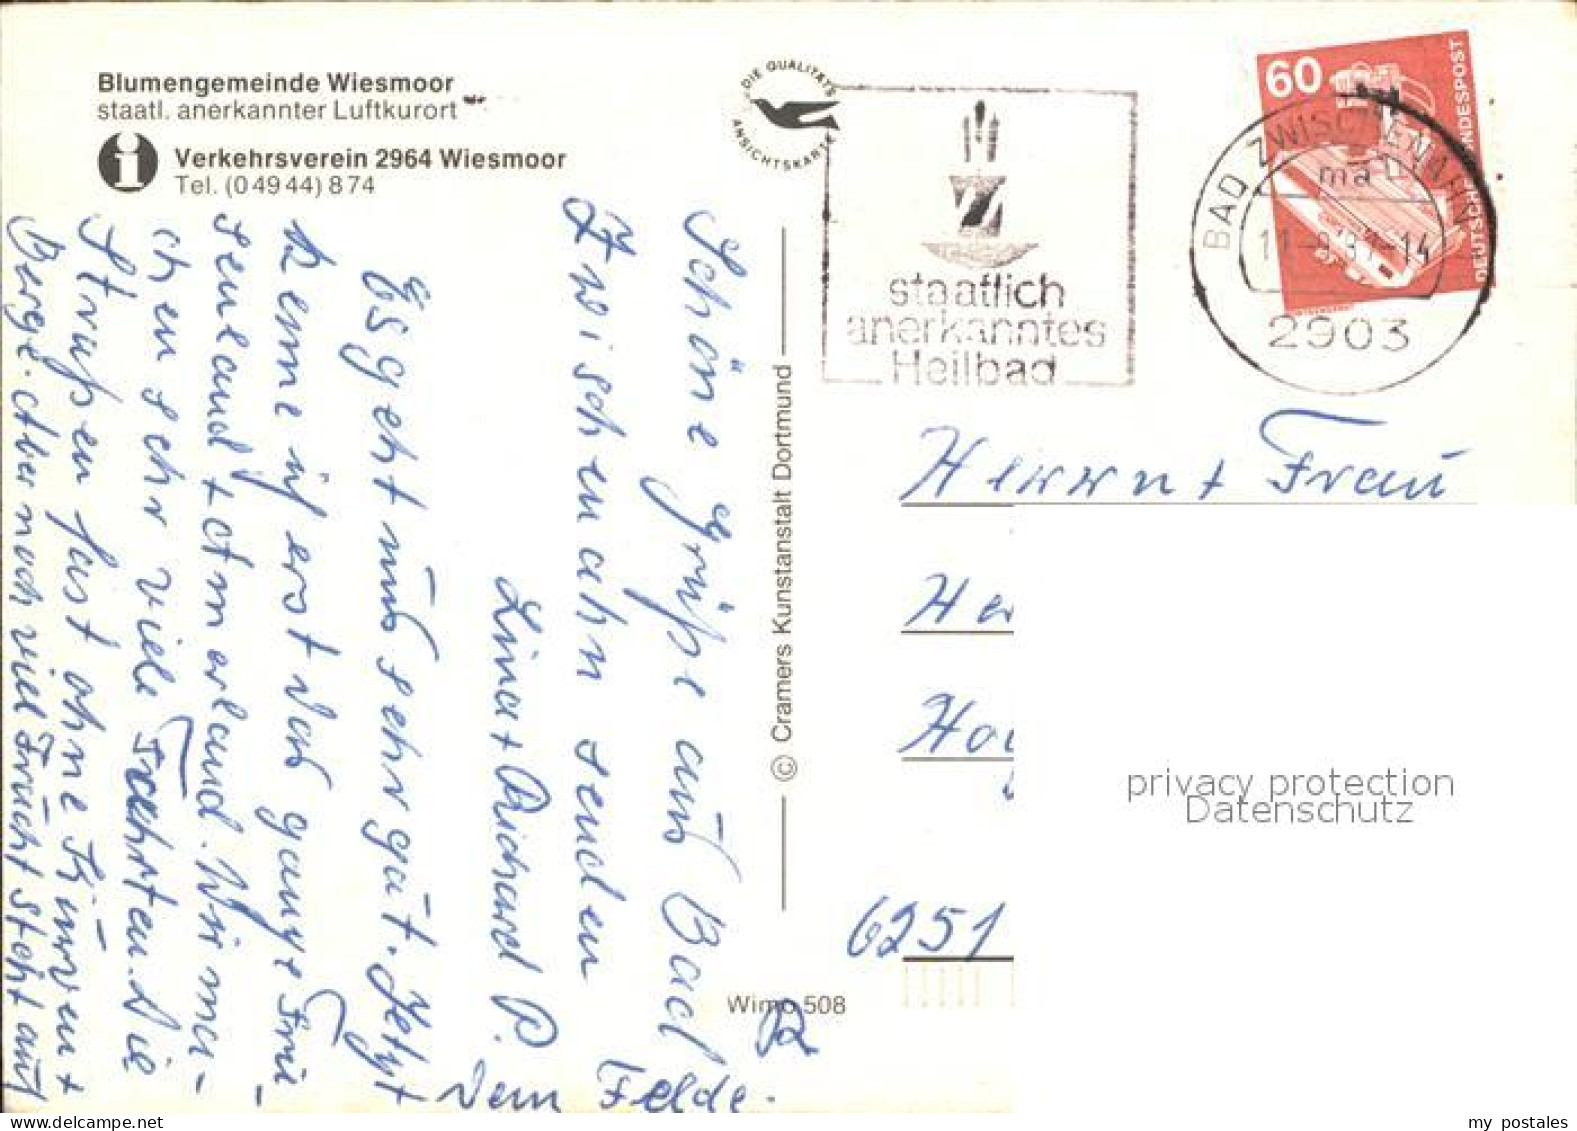 Blumengemeinde Wiesmoor
staatl. anerkannter Luftkurort
i
Verkehrsverein 2964 Wiesmoor
Tel. (0 49 44) 8 74
DIE QUALITÄTS
ANSICHTSKARTE
staatlich
anerkanntes
Heilbad
60
DEUTSCHE BUNDESPOST
BAD ZWISCHENAHN
ma
2903
Schöne Grüße aus Bad
Zwischenahn senden
Lina + Richard P.
Es geht uns sehr gut. Jetzt
kenne ich erst das ganze Frie-
senland + Ammerland. Wir ma-
chen sehr viele Fahrten. Die
Straßen fast ohne Kurven +
Berge. Aber noch viel Frucht steht auf
dem Felde.
© Cramers Kunstanstalt Dortmund
Wimo 508
Herrn + Frau
6251
privacy protection
Datenschutz
my postales